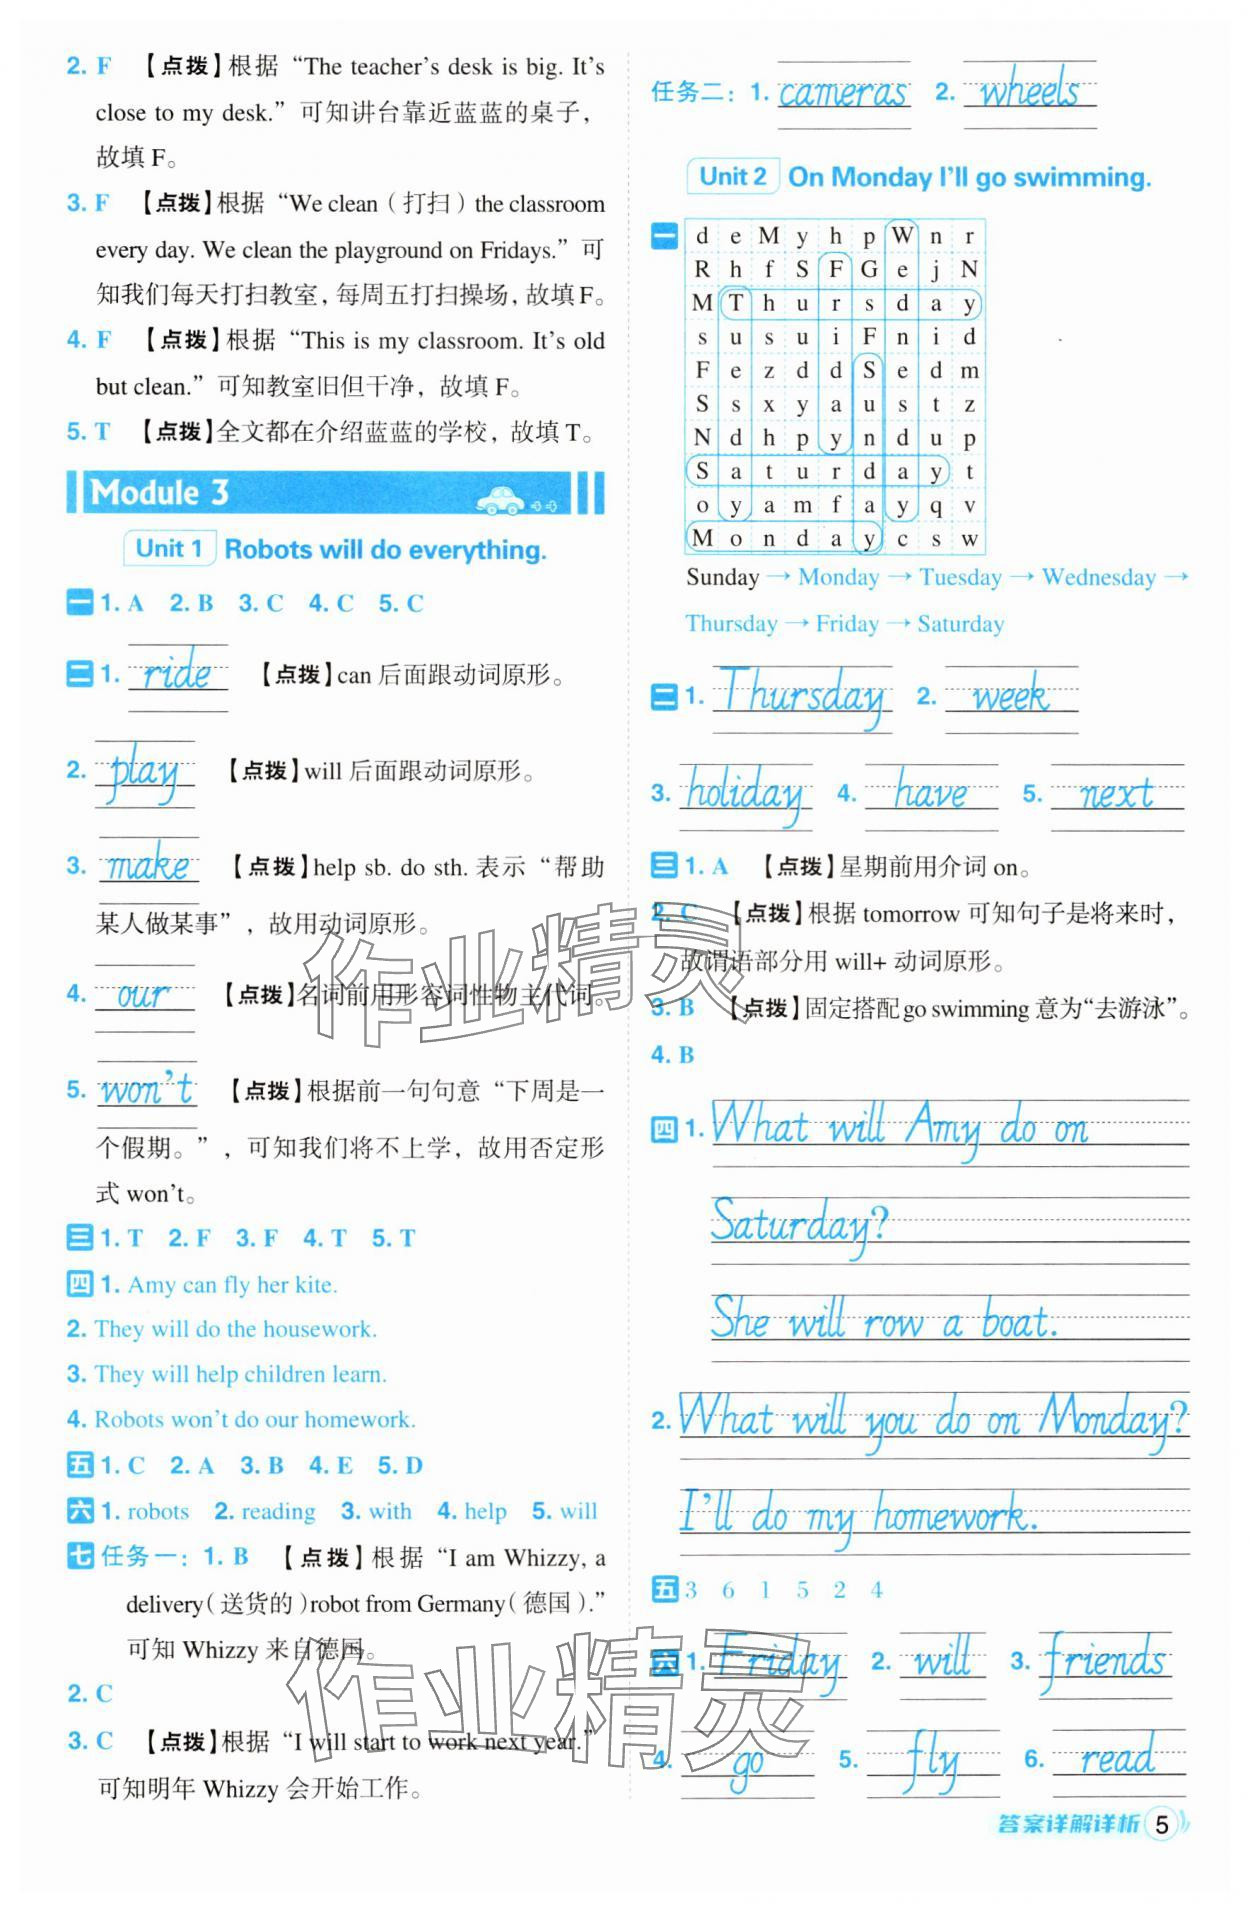 2. F 【点拨】根据 “The teacher's desk is big. It's
close to my desk.” 可知讲台靠近蓝蓝的桌子，
故填 F。
3. F 【点拨】根据 “We clean（打扫）the classroom
every day. We clean the playground on Fridays.” 可
知我们每天打扫教室，每周五打扫操场，故填 F。
4. F 【点拨】根据 “This is my classroom. It's old
but clean.” 可知教室旧但干净，故填 F。
5. T 【点拨】全文都在介绍蓝蓝的学校，故填 T。
Module 3
Unit 1 Robots will do everything.
一 1. A 2. B 3. C 4. C 5. C
二 1. ride 【点拨】can 后面跟动词原形。
2. play 【点拨】will 后面跟动词原形。
3. make 【点拨】help sb. do sth. 表示 “帮助
某人做某事”，故用动词原形。
4. our 【点拨】名词前用形容词性物主代词。
5. won't 【点拨】根据前一句句意 “下周是一
个假期。”，可知我们将不上学，故用否定形
式 won't。
三 1. T 2. F 3. F 4. T 5. T
四 1. Amy can fly her kite.
2. They will do the housework.
3. They will help children learn.
4. Robots won't do our homework.
五 1. C 2. A 3. B 4. E 5. D
六 1. robots 2. reading 3. with 4. help 5. will
七 任务一：1. B 【点拨】根据 “I am Whizzy, a
delivery（送货的）robot from Germany（德国）.”
可知 Whizzy 来自德国。
2. C
3. C 【点拨】根据 “I will start to work next year.”
可知明年 Whizzy 会开始工作。
任务二：1. cameras 2. wheels
Unit 2 On Monday I'll go swimming.
一 d e M y h p W n r
R h f S F G e j N
M T h u r s d a y
s u s u i F n i d
F e z d d S e d m
S s x y a u s t z
N d h p y n d u p
S a t u r d a y t
o y a m f a y q v
M o n d a y c s w
Sunday → Monday → Tuesday → Wednesday →
Thursday → Friday → Saturday
二 1. Thursday 2. week
3. holiday 4. have 5. next
三 1. A 【点拨】星期前用介词 on。
2. C 【点拨】根据 tomorrow 可知句子是将来时，
故谓语部分用 will+ 动词原形。
3. B 【点拨】固定搭配 go swimming 意为“去游泳”。
4. B
四 1. What will Amy do on
Saturday?
She will row a boat.
2. What will you do on Monday?
I'll do my homework.
五 3 6 1 5 2 4
六 1. Friday 2. will 3. friends
4. go 5. fly 6. read
答案详解详析 5
作业精灵
作业精灵